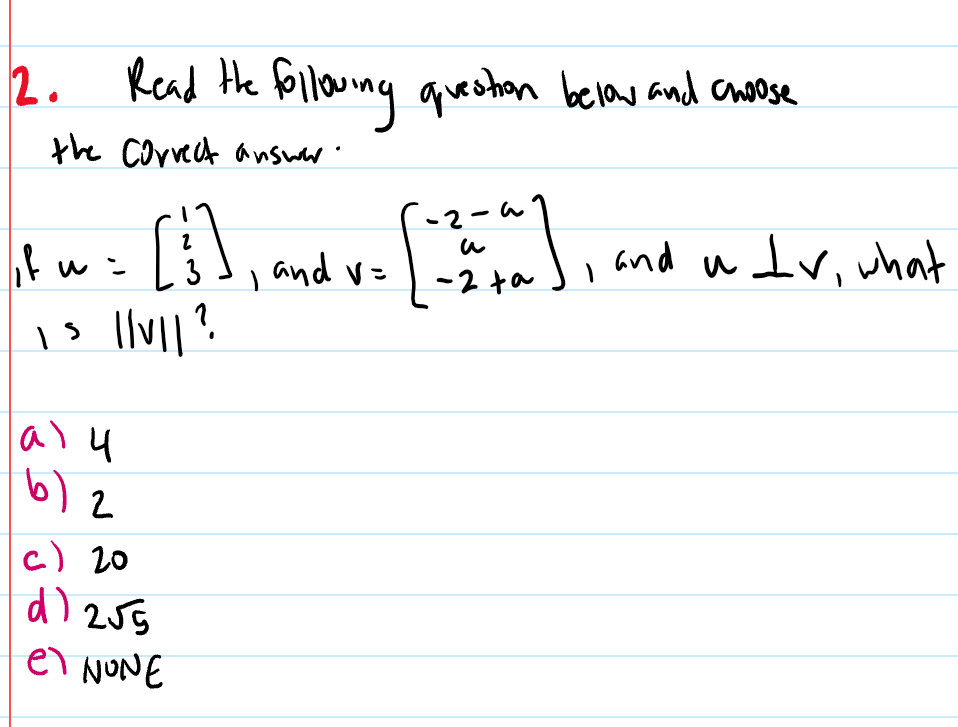 2. Read the following question below and choose
the correct answer.
if u = [1 2 3], and v = [-2-a a -2+a], and u ⊥ v, what
is ||v||?
a) 4
b) 2
c) 20
d) 2√5
e) NONE